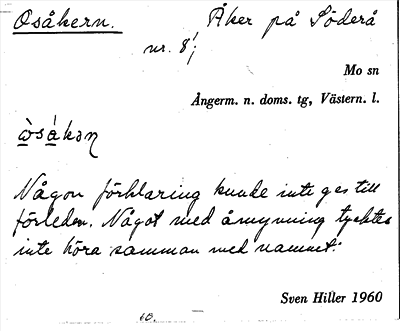 Osåkern.
Åker på Söderå
nr. 8¹;
Mo sn
Ångerm. n. doms. tg, Västern. l.
òsákən
Någon förklaring kunde inte ges till
förleden. Något med åmynning tycktes
inte höra samman med namnet.
Sven Hiller 1960